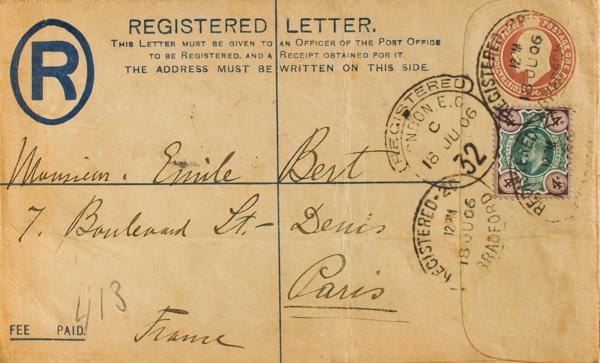 R
REGISTERED LETTER.
THIS LETTER MUST BE GIVEN TO AN OFFICER OF THE POST OFFICE
TO BE REGISTERED, AND A RECEIPT OBTAINED FOR IT.
THE ADDRESS MUST BE WRITTEN ON THIS SIDE.
REGISTERED
12 PM
18 JU 06
REGISTERED
LONDON. E.C.
C
18 JU 06
32
4D
4D
Monsieur. Emile Bert
7. Boulevard St- Denis
Paris
France
REGISTERED
12 PM
18 JU 06
BRADFORD
413
FEE PAID.